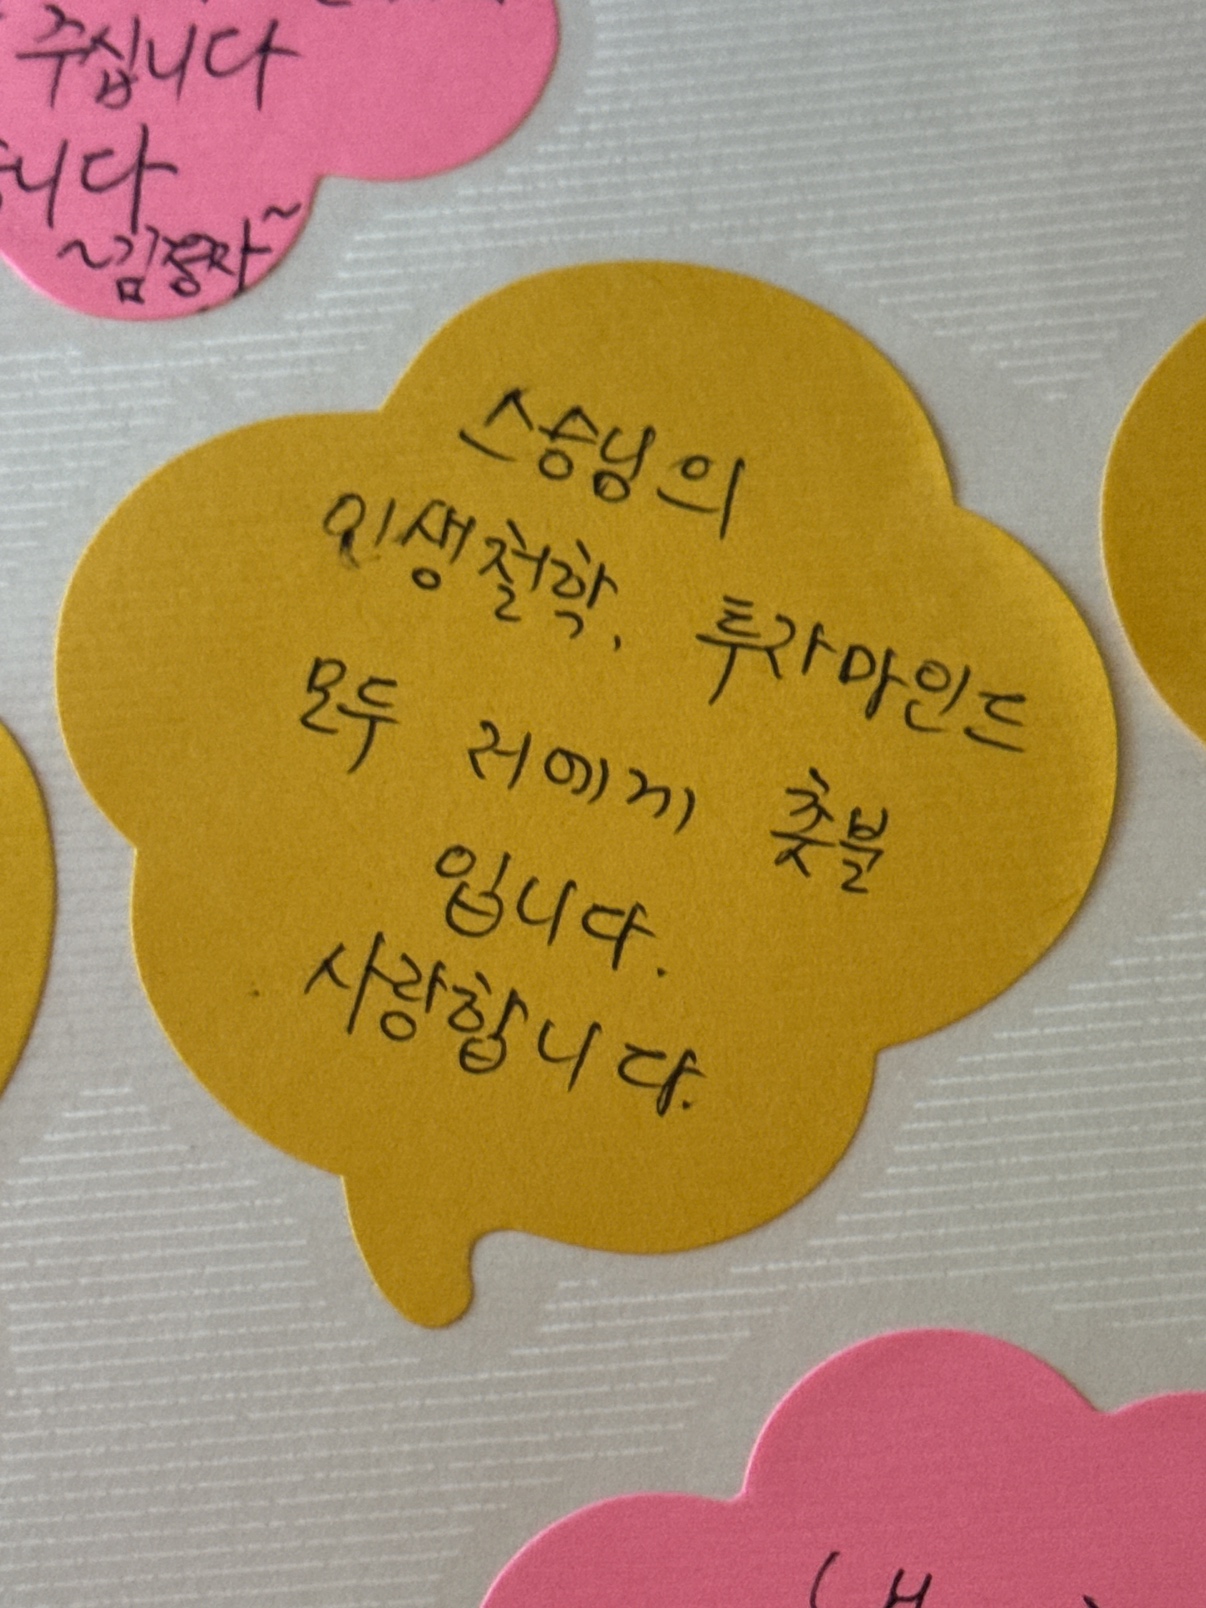 주십니다
니다
~김정자~
스승님의
인생철학, 투자마인드
모두 러에게 촛불
입니다.
사랑합니다.